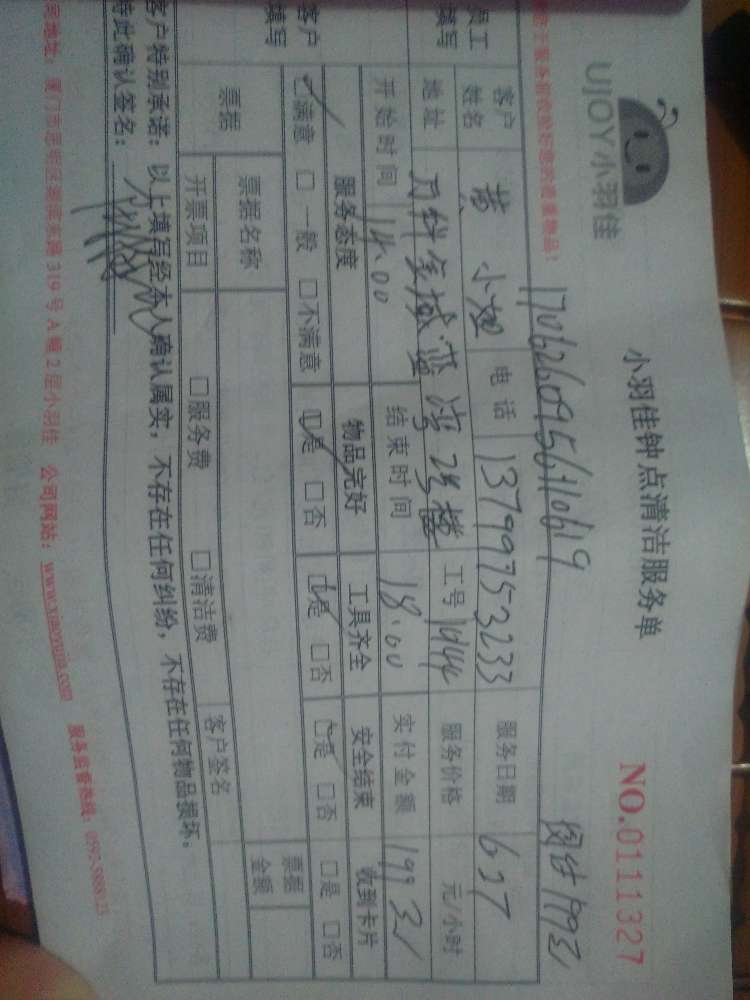 UJOY小羽佳
小羽佳钟点清洁服务单
NO.0111327
服务前收拾好您的贵重物品！
员工填写
客户姓名 黄小姐 电话 13799753233 服务日期 6.27
地址 蓝湾 2号楼 工号 1944 服务价格 元/小时
开始时间 14.00 结束时间 18.00 实付金额 199元
客户填写
服务态度 物品完好 工具齐全 安全结束 收到卡片
☑满意 □一般 □不满意 ☑是 □否 ☑是 □否 ☑是 □否 □是 □否
票据 票据名称 票据金额
开票项目 □服务费 □清洁费 客户签名
客户特别承诺：以上填写经本人确认属实，不存在任何纠纷，不存在任何物品损坏。
特此确认签名：
司地址： 厦门市思明区 319号A幢2层小羽佳 公司网站：www.xiaoyujia.com 服务监督热线：